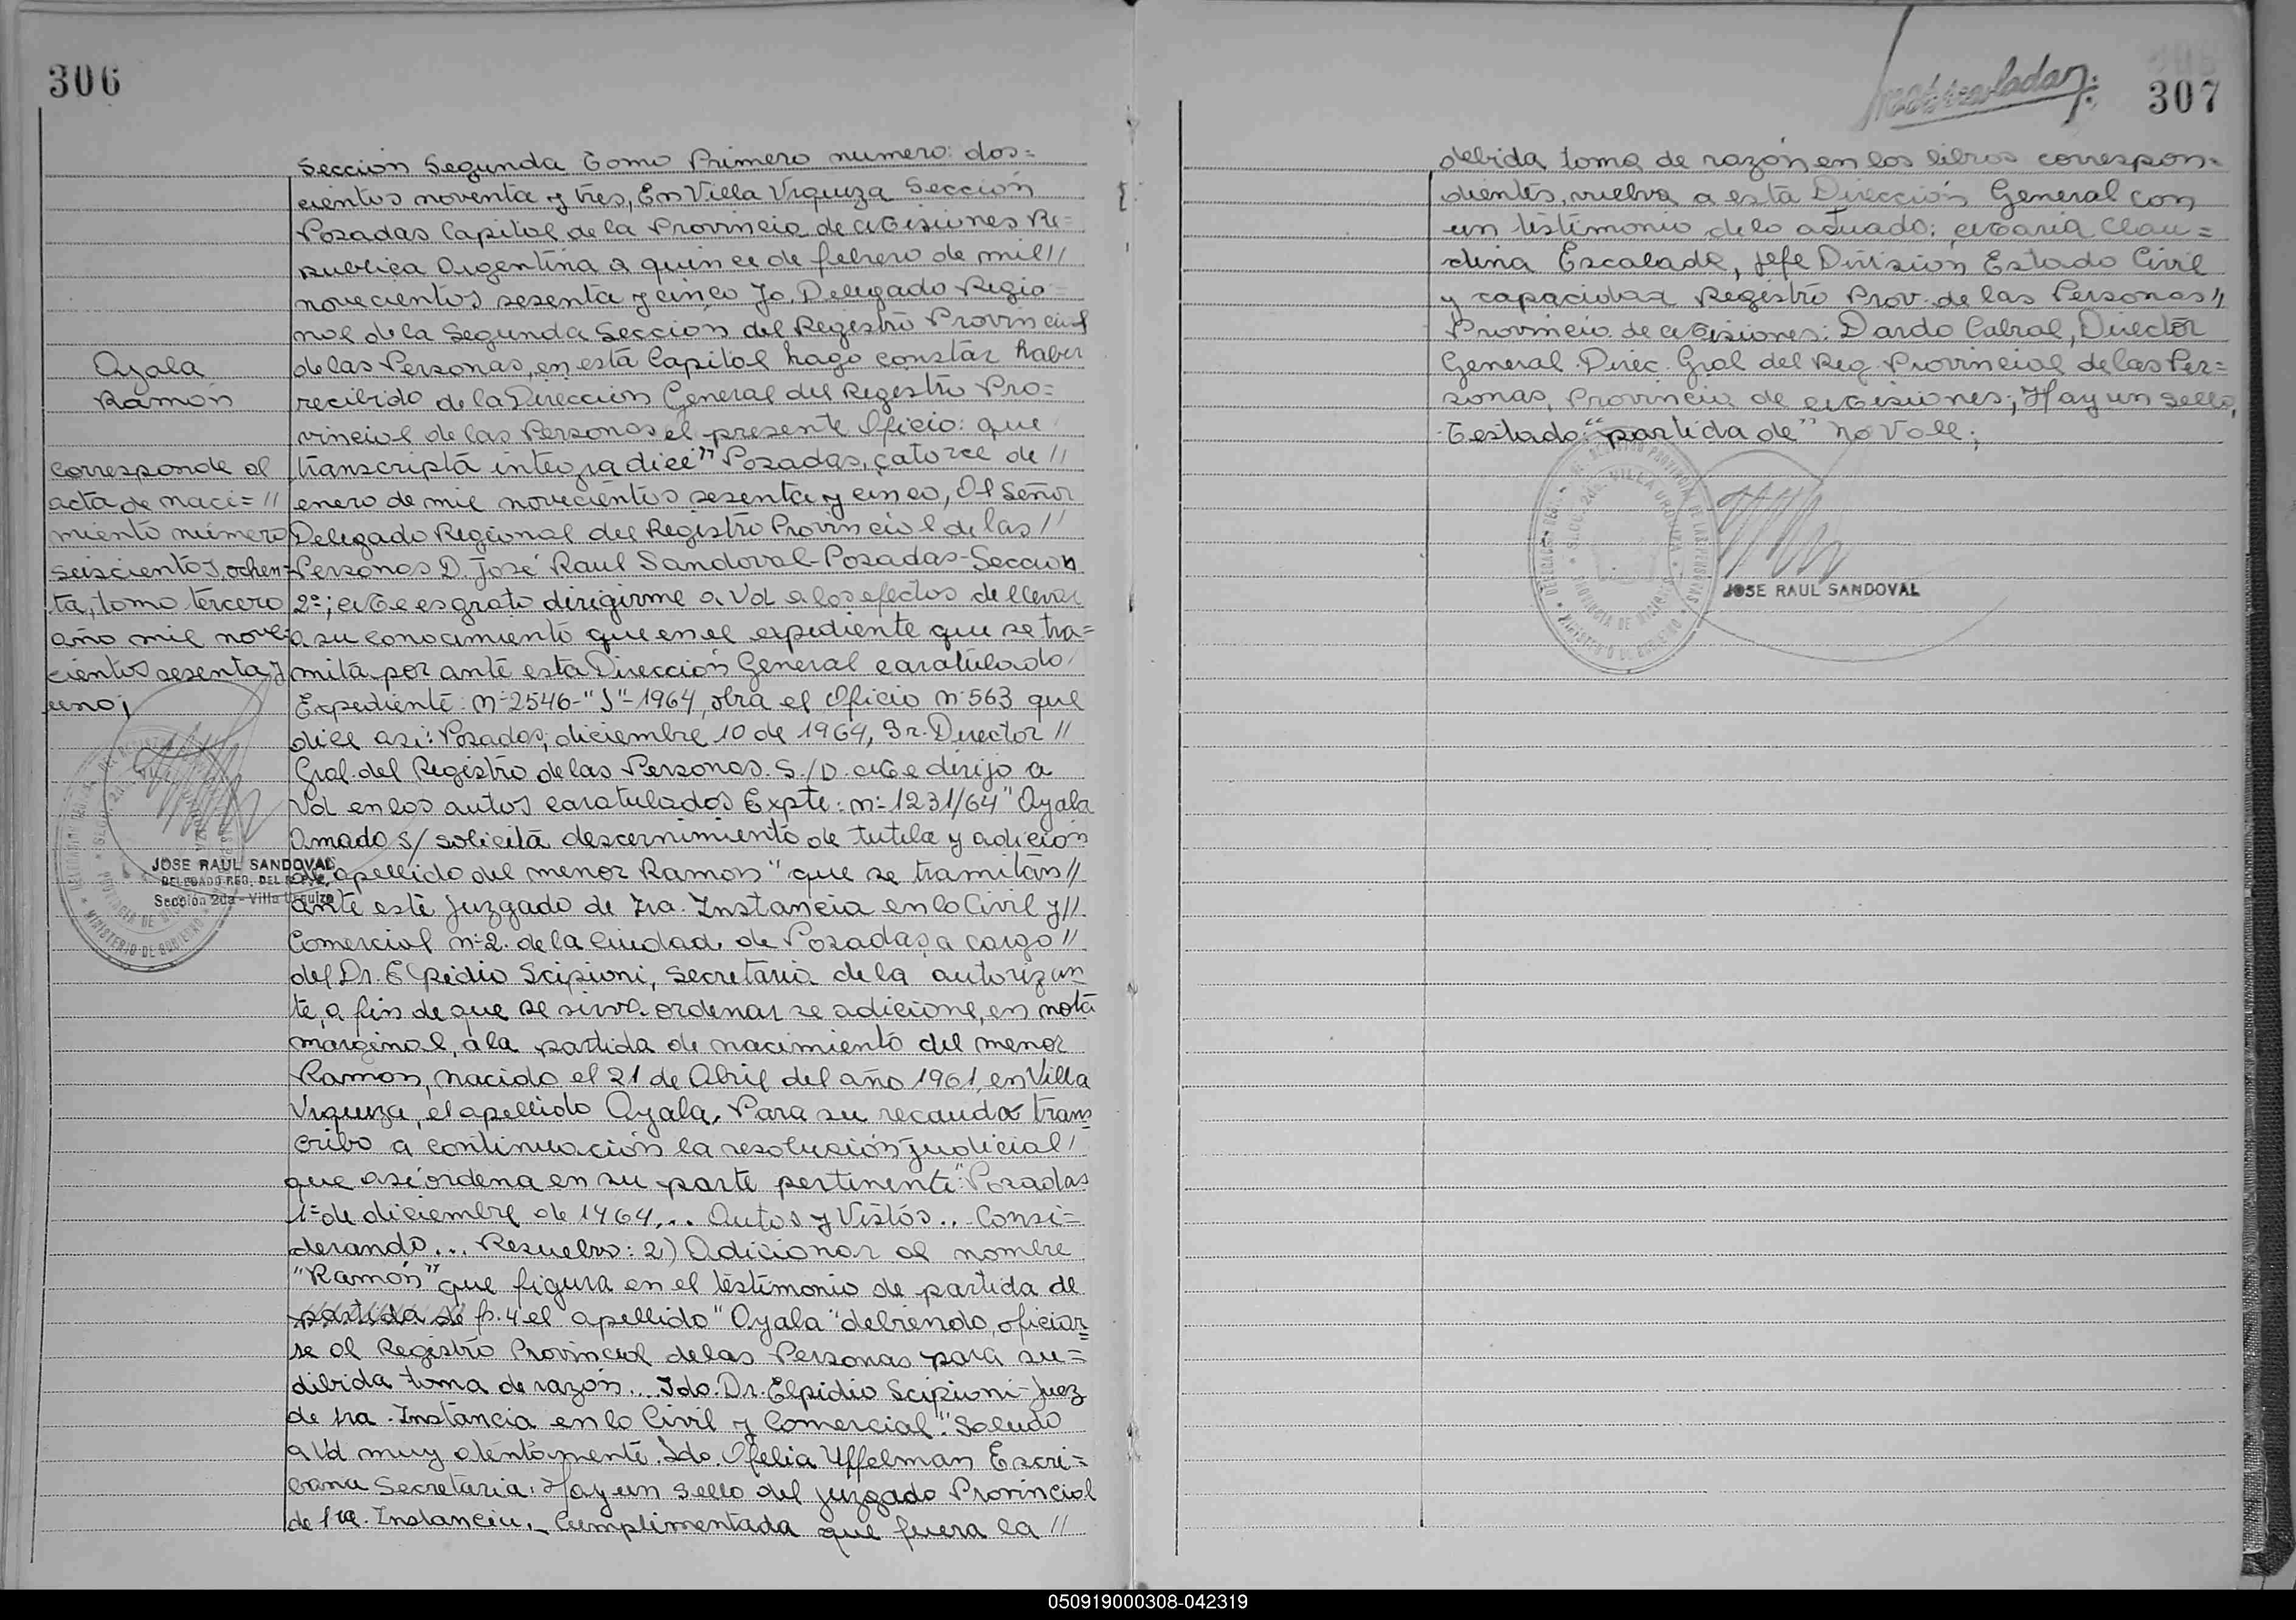 306
Sección Segunda Tomo Primero numero: dos=
cientos noventa y tres, En Villa Urquiza Sección
Posadas Capital de la Provincia de Misiones Re=
publica Argentina a quince de febrero de mil //
novecientos sesenta y cinco Yo. Delegado Regio=
nal de la Segunda Sección del Registro Provincial
de las Personas, en esta Capital hago constar haber
recibido de la Dirección General del Registro Pro=
vincial de las Personas el presente Oficio: que
transcripta integra dice" Posadas, catorce de //
enero de mil novecientos sesenta y cinco, Al Señor
Delegado Regional del Registro Provincial de las //
Personas D. José Raul Sandoval-Posadas-Sección
2º; Me es grato dirigirme a Vd a los efectos de llevar
a su conocimiento que en el expediente que se tra=
mita por ante esta Dirección General caratulado
Expediente: nº 2546-"J"-1964, obra el Oficio nº 563 que
dice asi: Posadas, diciembre 10 de 1964, Sr. Director //
Gral. del Registro de las Personas. S./D. Me dirijo a
Vd en los autos caratulados Expte: nº 1231/64 "Ayala
Amado s/ solicita descernimiento de tutela y adición
de apellido del menor Ramon" que se tramitan //
ante este Juzgado de 1ra. Instancia en lo Civil y //
Comercial nº 2. de la Ciudad de Posadas, a cargo //
del Dr. Elpidio Scipioni, Secretaria de la autorizan
te, a fin de que se sirva ordenar se adicione, en nota
marginal, a la partida de nacimiento del menor
Ramon, nacido el 21 de Abril del año 1961, en Villa
Urquiza, el apellido Ayala. Para su recaudo trans
cribo a continuación la resolución judicial /
que asi ordena en su parte pertinente: "Posadas
1º de diciembre de 1964... Autos y Vistos... Consi=
derando... Resuelvo: 2) Adicionar al nombre
"Ramón" que figura en el testimonio de partida de
partida de fs. 4 el apellido "Ayala" debiendo, oficiar=
se al Registro Provincial de las Personas para su=
debida toma de razón... Fdo. Dr. Elpidio Scipioni-Juez
de 1ra. Instancia en lo Civil y Comercial". Saludo
a Vd muy atentamente. Fdo. Ofelia Uffelman Escri=
bana Secretaria: Hay un sello del juzgado Provincial
de 1ra. Instancia._ Cumplimentada que fuera la //
Ayala
Ramón
Corresponde al
acta de naci= //
miento número
seiscientos, ochen=
ta, tomo tercero
año mil nove=
cientos sesenta y
uno;
JOSE RAUL SANDOVAL
DELEGADO REG. DEL R.P.P.
Sección 2da - Villa Urquiza
MINISTERIO DE GOBIERNO
307
debida toma de razón en los libros correspon=
dientes, vuelva a esta Dirección General con
un testimonio de lo actuado; Maria Clau=
dina Escalada, Jefe División Estado Civil
y capacidad Registro Prov. de las Personas //
Provincia de Misiones: Dardo Cabral, Director
General. Direc. Gral del Reg. Provincial de las Per=
sonas, Provincia de Misiones; Hay un sello,
Testado: "partida de" no Vale;
SECC. 2da. VILLA URQUIZA
PROVINCIA DE MISIONES
MINISTERIO DE GOBIERNO
JOSE RAUL SANDOVAL
050919000308-042319